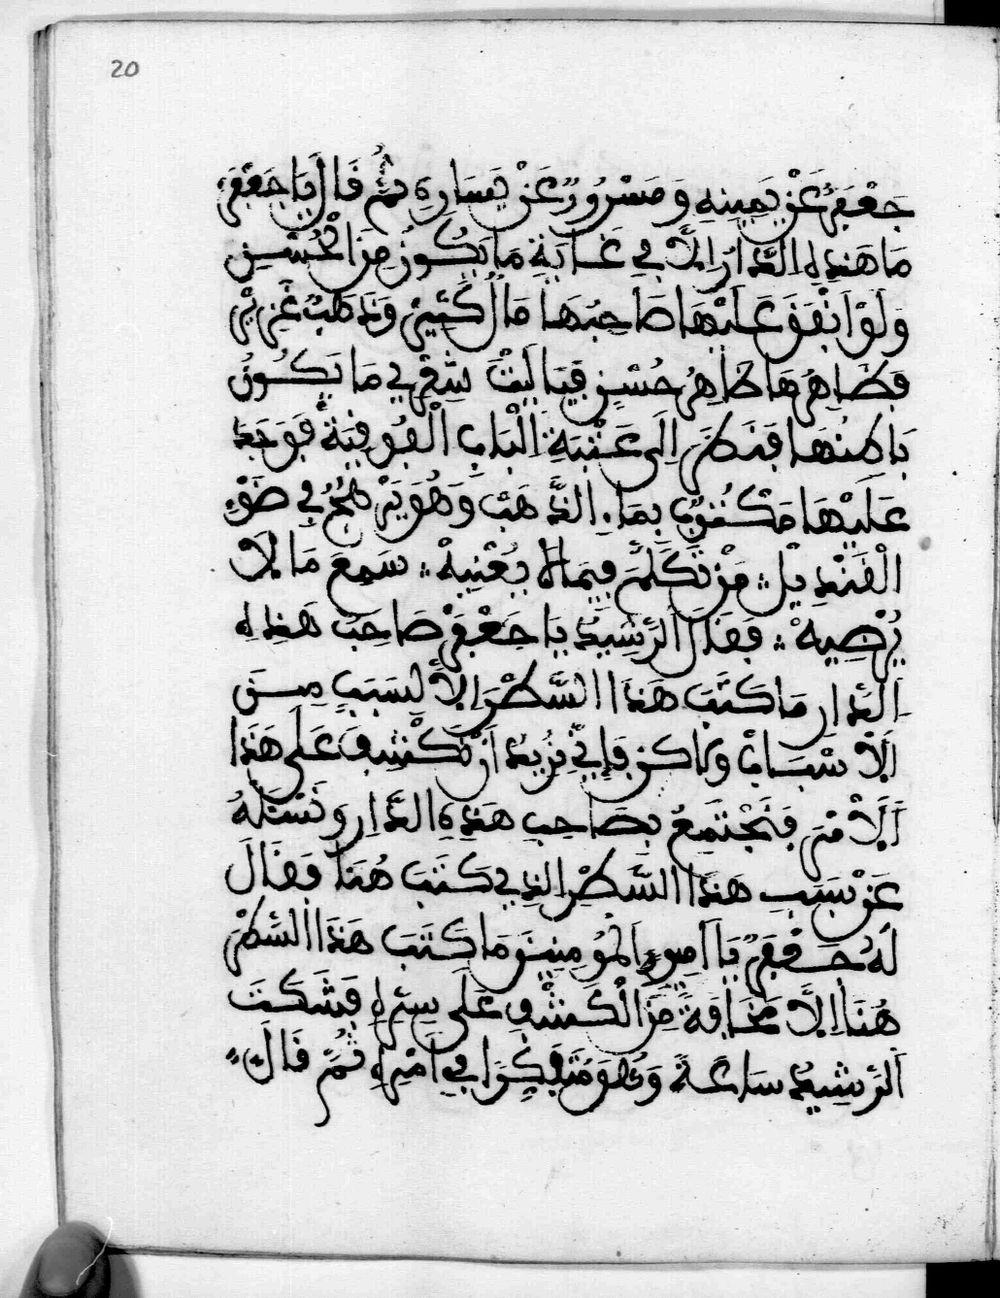 20
جَعْفَرٌ عَنْ يَمِينِهِ وَمَسْرُورٌ عَنْ يَسَارِهِ ثُمَّ قَالَ يَا جَعْفَر
مَا هَذِهِ الدَّارُ إِلَّا فِي غَايَةِ مَا يَكُونُ مِنَ الْحُسْنِ
وَلَوْ أَنْفَقَ عَلَيْهَا صَاحِبُهَا مَالٌ كَثِيرٌ وَذَهَبٌ غَزِيرٌ
فَظَاهِرُهَا ظَاهِرُ حُسْنٍ فَيَا لَيْتَ شِعْرِي مَا يَكُونُ
بَاطِنُهَا فَنَظَرَ إِلَى عَتْبَةِ الْبَابِ الْفُوقِيَةِ فَوَجَدَ
عَلَيْهَا مَكْتُوبٌ بِمَاءِ الذَّهَبْ وَهُوَ يَزْهَجُ فِي ضَوْءِ
الْقَنْدِيلِ ؞ مَنْ تَكَلَّمَ فِيمَا لَا يُعْنِيهْ ؞ سَمِعَ مَا لَا
يُرْضِيهْ ؞ فَقَالَ الرَّشِيدُ يَا جَعْفَرْ صَاحِبُ هَذِهِ
الدَّارِ مَا كَتَبَ هَذَا الشَّطْرَ إِلَّا لِسَبَبٍ مِنَ
الْأَسْبَابِ وَلَاكِن فَإِنِّي نُرِيدُ أَنْ نَكْشِفَ عَلَى هَذَا
الْأَمْرِ فَنَجْتَمِعُ بِصَاحِبِ هَذِهِ الدَّارِ وَنَسْئَلُهُ
عَنْ سَبَبِ هَذَا الشَّطْرِ الذِي كَتَبَ هُنَا فَقَالَ
لَهُ جَعْفَرٌ يَا أَمِيرَ الْمُؤمِنِينَ وَمَا كَتَبَ هَذَا الشَّطْرَ
هُنَا إِلَّا مَخَافَةً مِنَ الْكَشْفِ عَلَى سِتْرِهِ فَسَكَتَ
الرَّشِيدُ سَاعَةً وَهُوَ مُتَفَكِّرًا فِي أَمْرِهِ ثُمَّ قَالَ